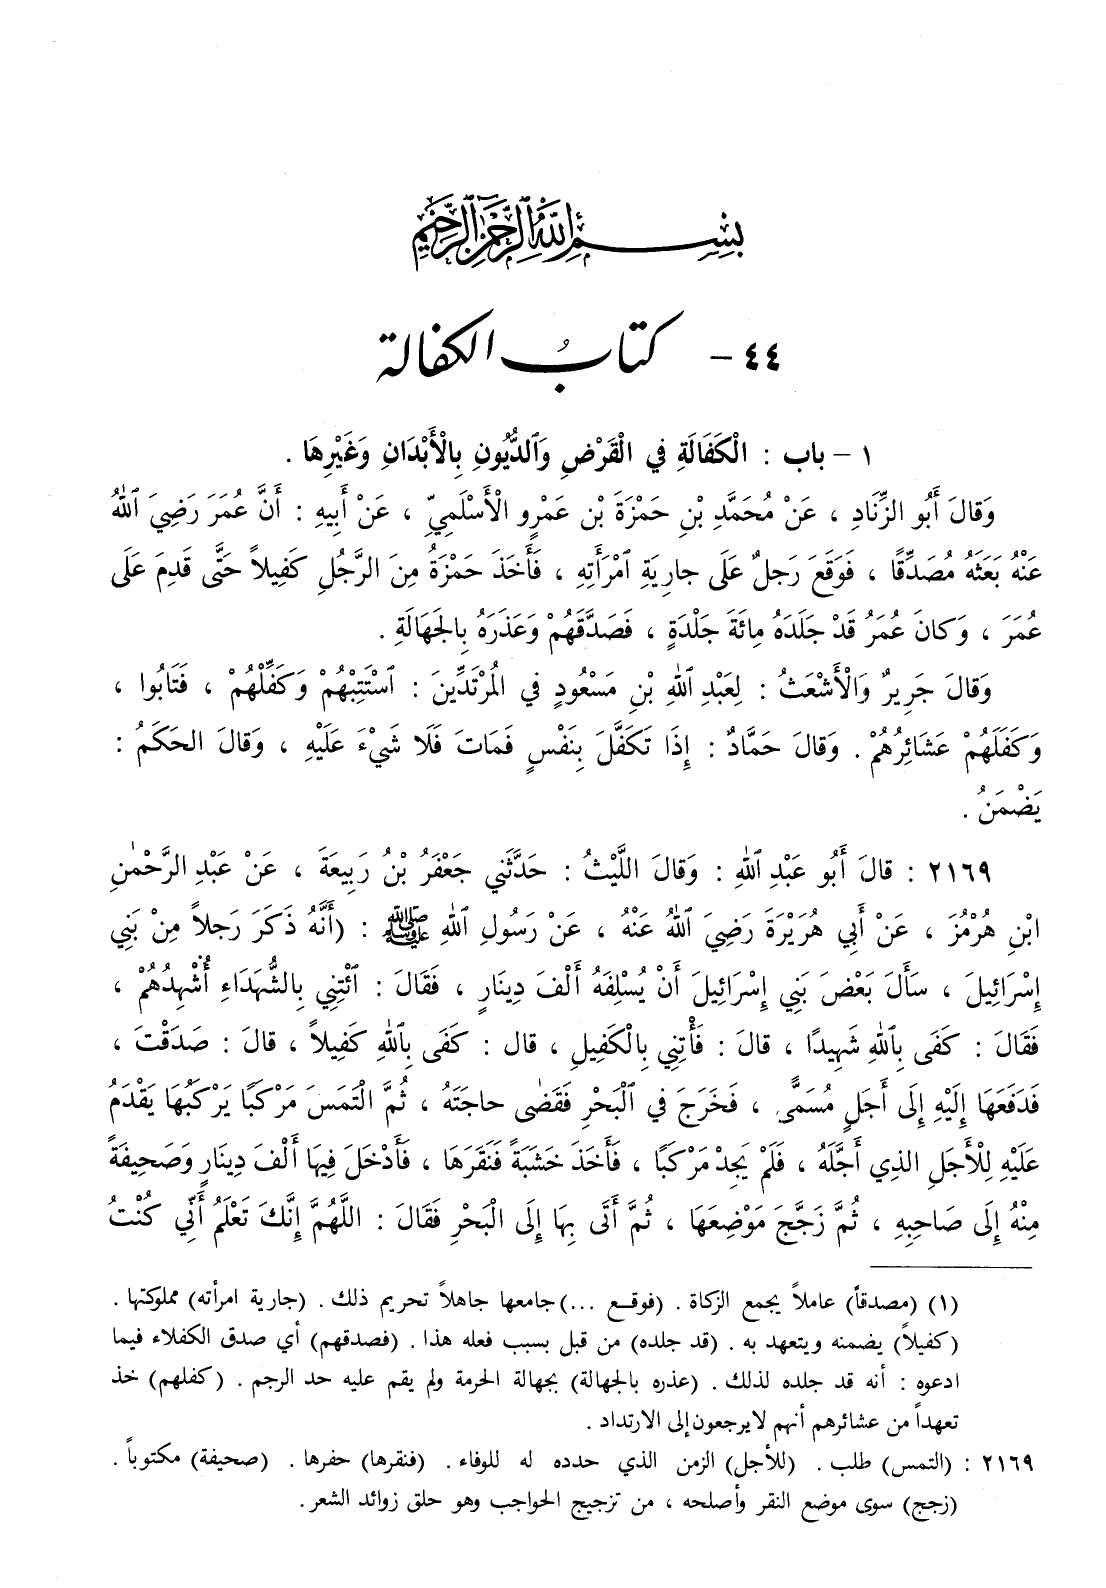 بِسْمِ اللَّهِ الرَّحْمَٰنِ الرَّحِيمِ
٤٤ - كتابُ الكفالة
١ - باب : الْكَفَالَةِ في الْقَرْضِ وَٱلدُّيُونِ بِالْأَبْدَانِ وَغَيْرِهَا .
وَقالَ أَبُو الزِّنَادِ ، عَنْ مُحَمَّدِ بْنِ حَمْزَةَ بْنِ عَمْرٍو الْأَسْلَمِيِّ ، عَنْ أَبِيهِ : أَنَّ عُمَرَ رَضِيَ ٱللهُ
عَنْهُ بَعَثَهُ مُصَدِّقًا ، فَوَقَعَ رَجلٌ عَلَى جارِيَةِ ٱمْرَأَتِهِ ، فَأَخَذَ حَمْزَةُ مِنَ الرَّجُلِ كَفِيلاً حَتَّى قَدِمَ عَلَى
عُمَرَ ، وَكانَ عُمَرُ قَدْ جَلَدَهُ مِائَةَ جَلْدَةٍ ، فَصَدَّقَهُمْ وَعَذَرَهُ بِالجَهَالَةِ .
وَقالَ جَرِيرٌ وَالْأَشْعَثُ : لِعَبْدِ ٱللهِ بْنِ مَسْعُودٍ في المُرْتَدِّينَ : ٱسْتَتِبْهُمْ وَكَفِّلْهُمْ ، فَتَابُوا ،
وَكَفَلَهُمْ عَشَائِرُهُمْ . وَقالَ حَمَّادٌ : إِذَا تَكَفَّلَ بِنَفْسٍ فَمَاتَ فَلَا شَيْءَ عَلَيْهِ ، وَقالَ الحَكَمُ :
يَضْمَنُ .
٢١٦٩ : قالَ أَبُو عَبْدِ ٱللهِ : وَقالَ اللَّيْثُ : حَدَّثَنِي جَعْفَرُ بْنُ رَبِيعَةَ ، عَنْ عَبْدِ الرَّحْمٰنِ
ابْنِ هُرْمُزَ ، عَنْ أَبِي هُرَيْرَةَ رَضِيَ ٱللهُ عَنْهُ ، عَنْ رَسُولِ ٱللهِ ﷺ : (أَنَّهُ ذَكَرَ رَجلاً مِنْ بَنِي
إِسْرَائِيلَ ، سَأَلَ بَعْضَ بَنِي إِسْرَائِيلَ أَنْ يُسْلِفَهُ أَلْفَ دِينَارٍ ، فَقَالَ : ٱئْتِنِي بِالشُّهَدَاءِ أُشْهِدُهُمْ ،
فَقَالَ : كَفَى بِٱللهِ شَهِيدًا ، قالَ : فَأْتِنِي بِالْكَفِيلِ ، قال : كَفَى بِٱللهِ كَفِيلاً ، قالَ : صَدَقْتَ ،
فَدَفَعَهَا إِلَيْهِ إِلَى أَجَلٍ مُسَمًّى ، فَخَرَجَ في الْبَحْرِ فَقَضَى حاجَتَهُ ، ثُمَّ الْتَمَسَ مَرْكَبًا يَرْكَبُهَا يَقْدَمُ
عَلَيْهِ لِلْأَجَلِ الذِي أَجَّلَهُ ، فَلَمْ يَجِدْ مَرْكَبًا ، فَأَخَذَ خَشَبَةً فَنَقَرَهَا ، فَأَدْخَلَ فِيهَا أَلْفَ دِينَارٍ وَصَحِيفَةً
مِنْهُ إِلَى صَاحِبِهِ ، ثُمَّ زَجَّجَ مَوْضِعَهَا ، ثُمَّ أَتَى بِهَا إِلَى الْبَحْرِ فَقَالَ : اللَّهُمَّ إِنَّكَ تَعْلَمُ أَنِّي كُنْتُ
(١) (مصدقاً) عاملاً يجمع الزكاة . (فوقع ...)جامعها جاهلاً تحريم ذلك . (جارية امرأته) مملوكتها .
(كفيلاً) يضمنه ويتعهد به . (قد جلده) من قبل بسبب فعله هذا . (فصدقهم) أي صدق الكفلاء فيما
ادعوه : أنه قد جلده لذلك . (عذره بالجهالة) بجهالة الحرمة ولم يقم عليه حد الرجم . (كفلهم) خذ
تعهداً من عشائرهم أنهم لا يرجعون إلى الارتداد .
٢١٦٩ : (التمس) طلب . (للأجل) الزمن الذي حدده له للوفاء . (فنقرها) حفرها . (صحيفة) مكتوباً .
(زجج) سوى موضع النقر وأصلحه ، من تزجيج الحواجب وهو حلق زوائد الشعر .